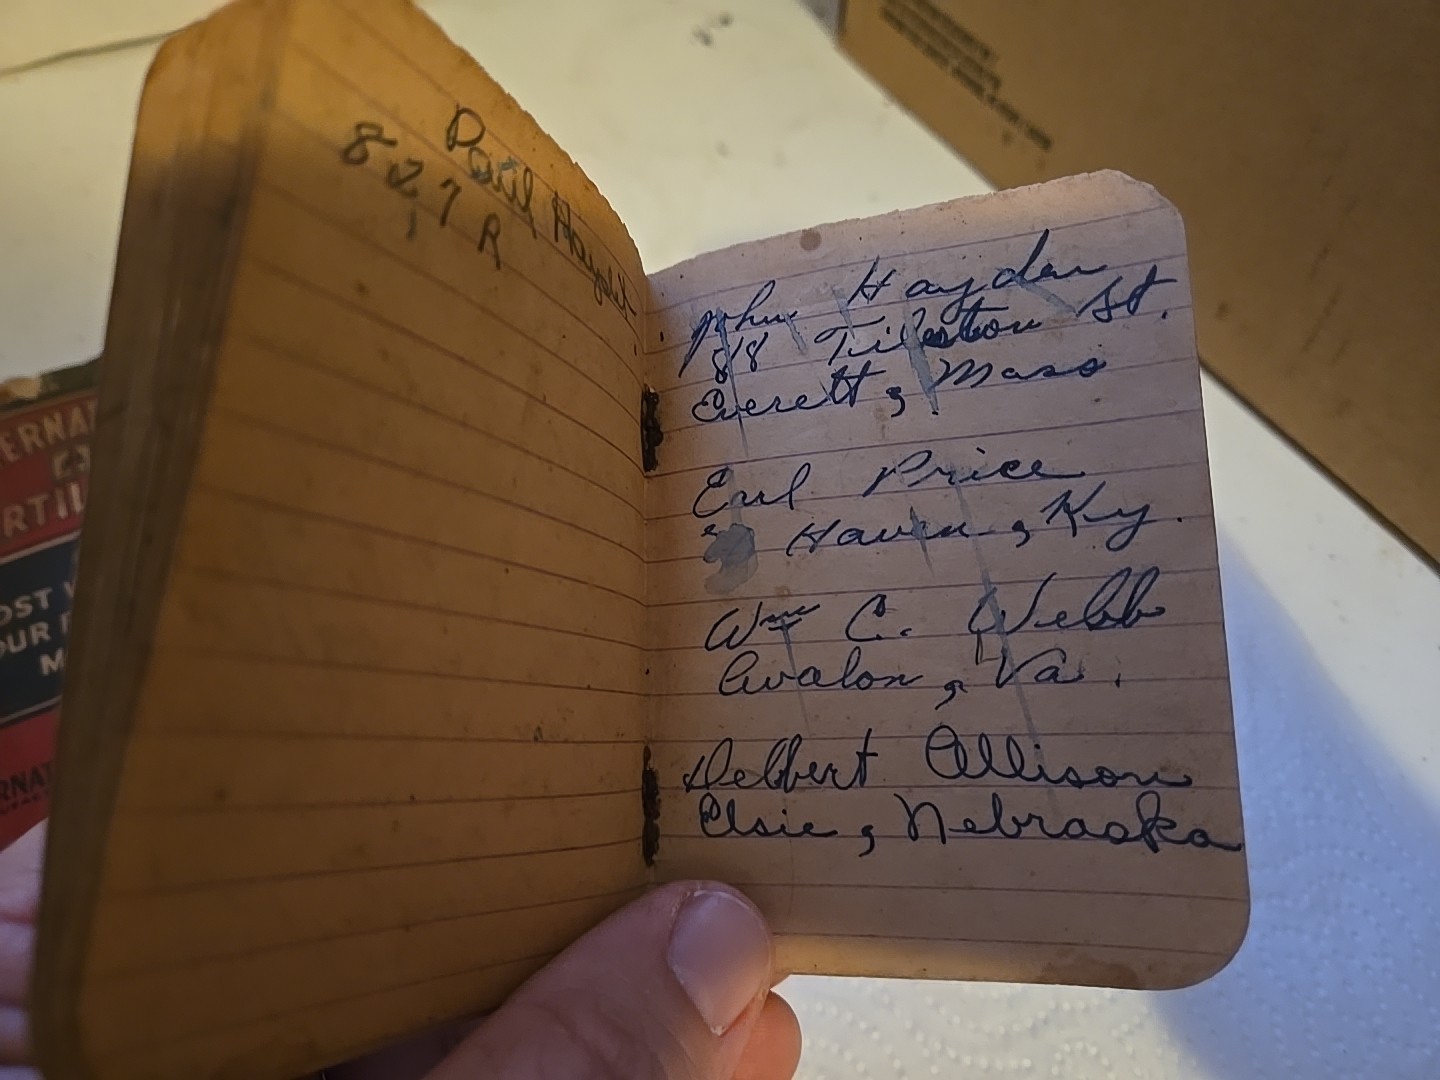 Paul
827 R
John Hayden
88 Tileston St.
Everett, Mass
Earl Price
Haven, Ky.
Wm C. Webb
Avalon, Va.
Delbert Allison
Elsie, Nebraska
ERNAT
RTIL
OST
OUR
M
RNAT